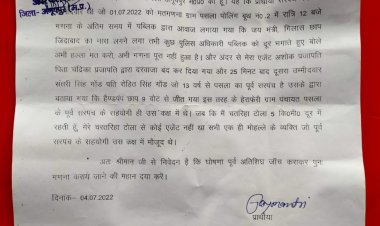 जिला-अनूपपुर (म.प्र.)
दिनांक 01.07.2022 को मतगणना ग्राम पसला पोलिंग बूथ नं0.2 में रात्रि 12 बजे
गणना के अंतिम समय में पब्लिक द्वारा आवाज लगाया गया कि जय मंत्री, गिलास छाप
जिंदाबाद का नारा लगने लगा तभी कुछ पुलिस अधिकारी पब्लिक को दूर भगाते हुए बोले
अभी हल्ला मत करो, अभी गणना पूरा नहीं हुआ है। और अंदर से मेरा एजेंट अशोक प्रजापति
पिता चंद्रिका प्रजापति द्वारा दरवाजा बंद कर दिया गया और 25 मिनट बाद दूसरा उम्मीदवार
संतरी सिंह गोंड पति रोहित सिंह गोंड जो 13 वर्ष से पसला का पूर्व सरपंच है उसके द्वारा
बताया गया कि हैण्डपंप छाप 9 वोट से जीत गया इस तरह के हेराफेरी ग्राम पंचायत पसला
के पूर्व सरपंच के सहयोगी ही उस कक्ष में थे। जब कि मैं चतरिहा टोला 5 कि0मी0 दूर में
रहती हूं, मेरे चतरहिा टोला से कोई एजेंट नहीं था सभी एक ही मोहल्ले के व्यक्ति जो पूर्व
सरपंच के सहयोगी उस कक्ष में मौजूद थे।
अतः श्रीमान जी से निवेदन है कि घोषणा पूर्व अतिशिघ्र जाँच कराकर पुनः
गणना कराये जाने की महान दया करें।
दिनांक- 04.07.2022
प्रार्थीया